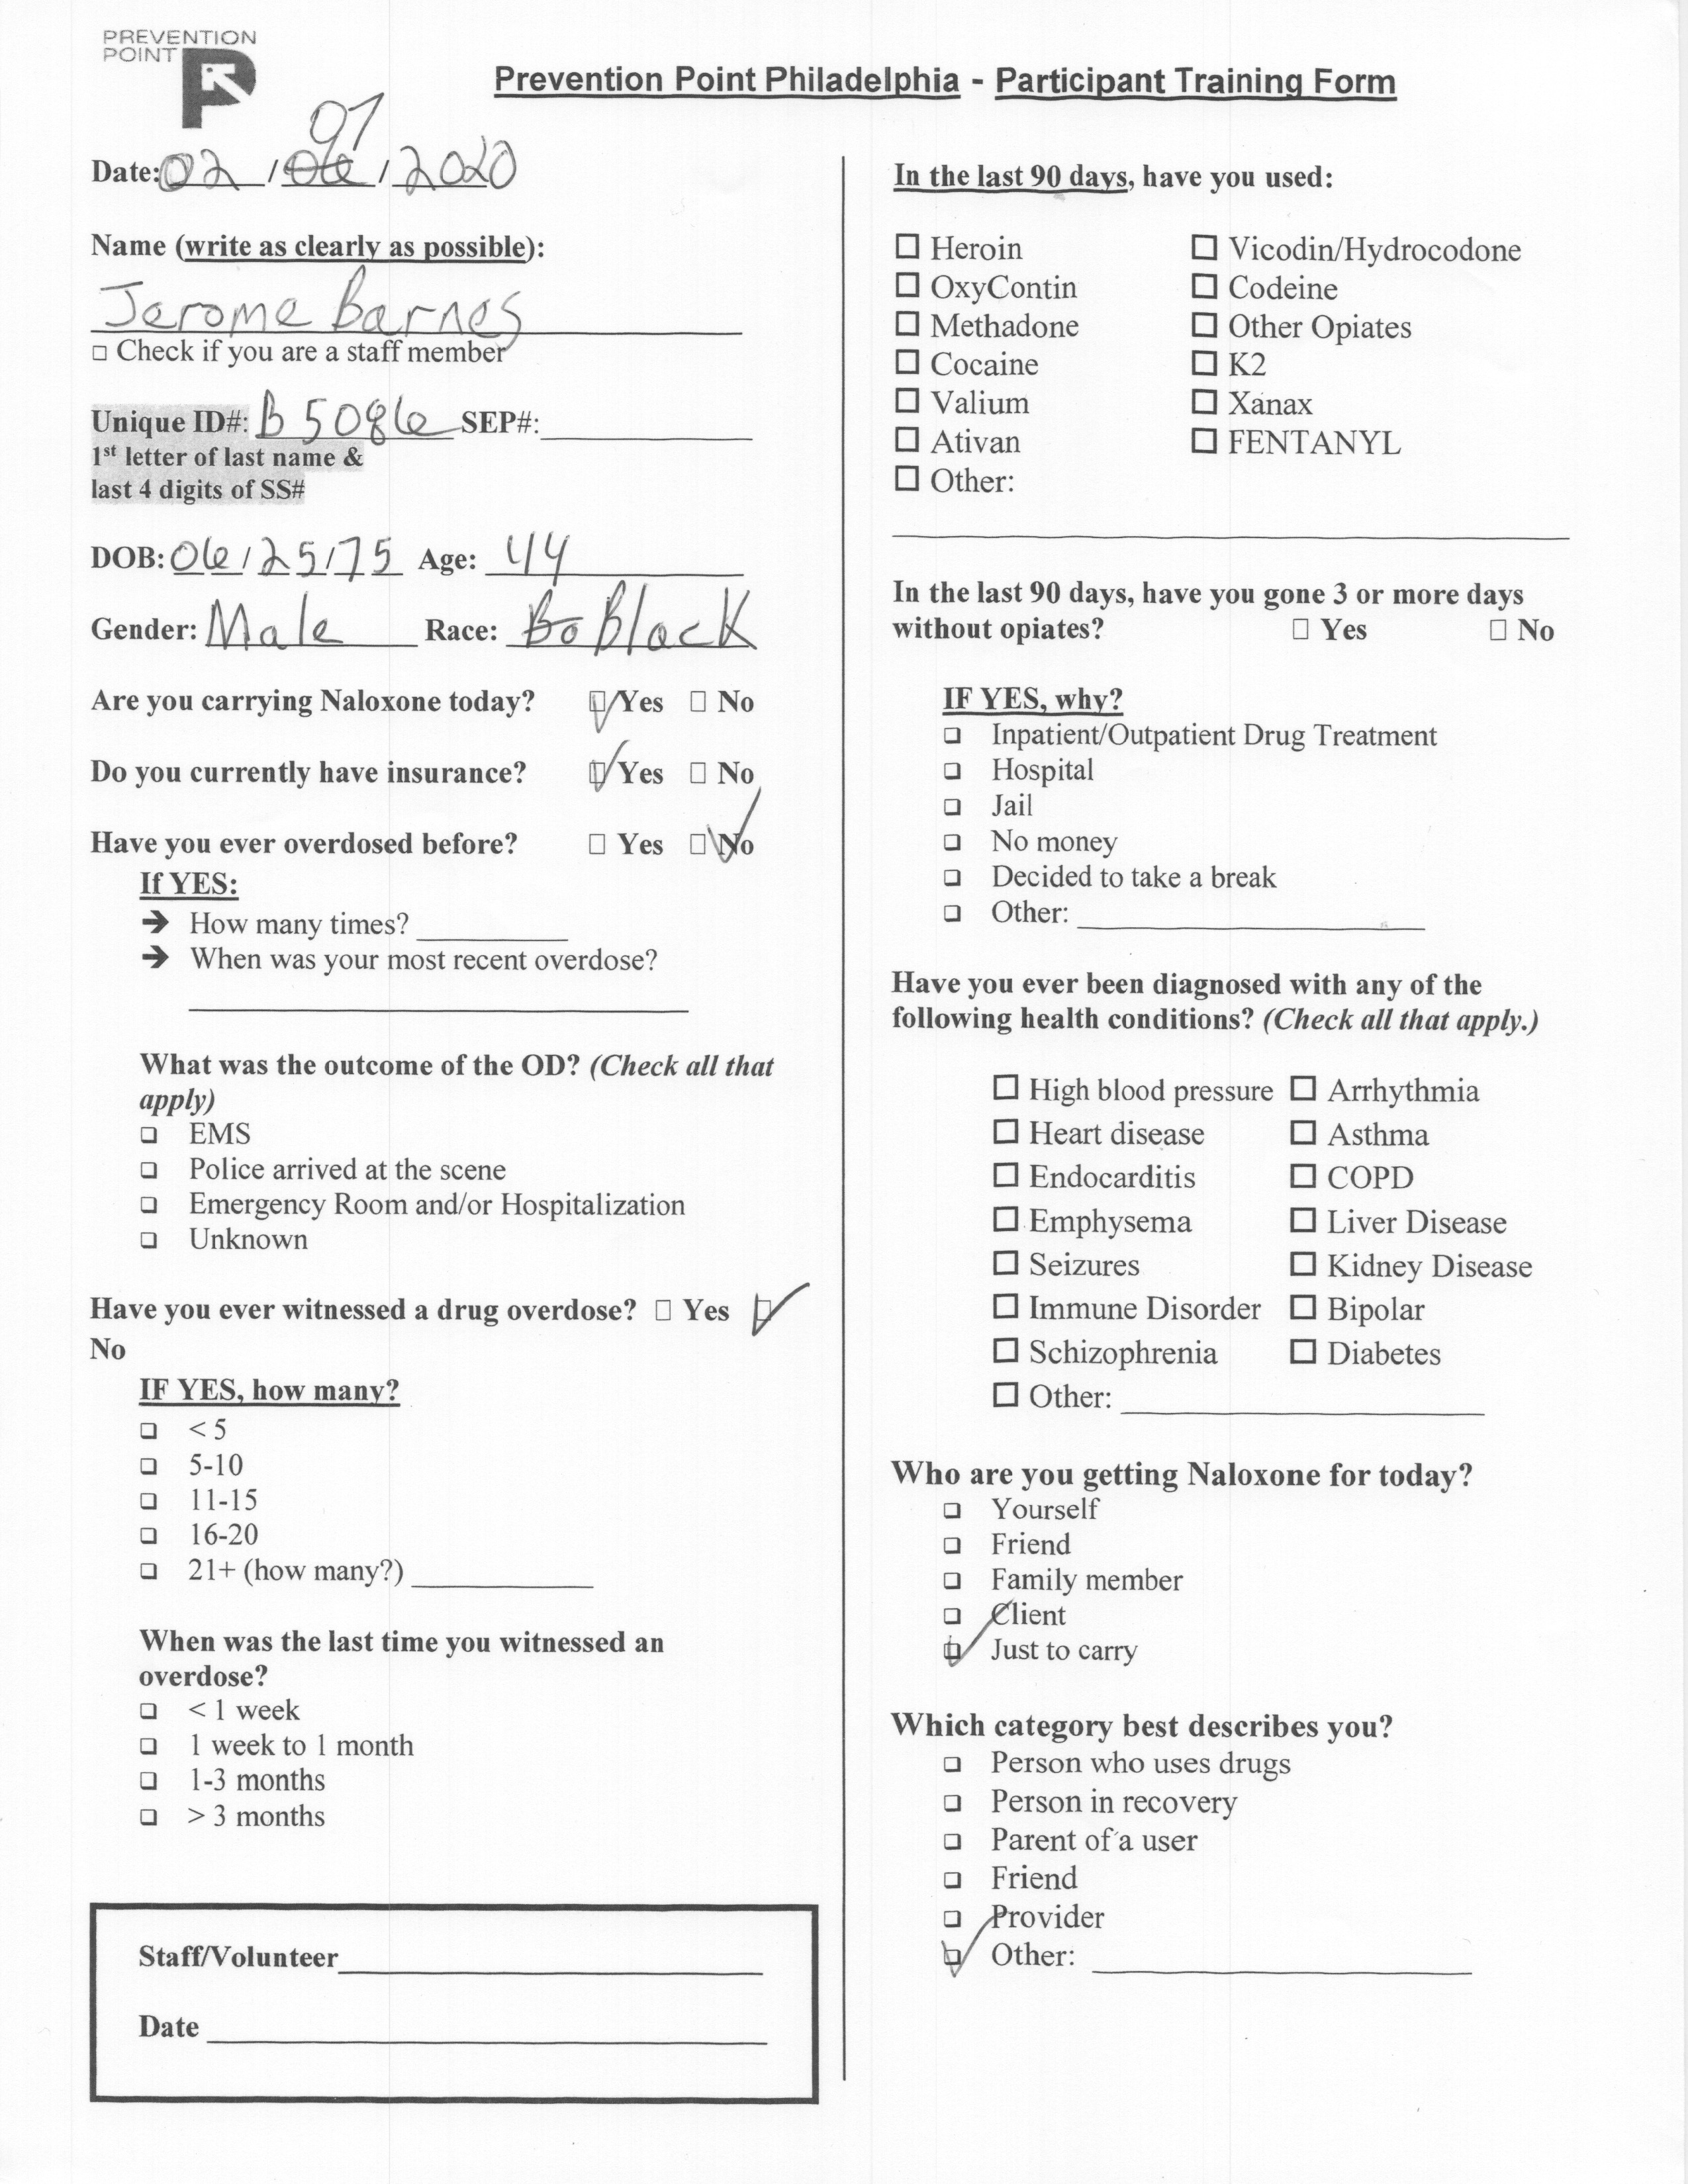 PREVENTION
POINT
Prevention Point Philadelphia - Participant Training Form
07
Date: 02 / 06 / 2020
Name (write as clearly as possible):
Jerome Barnes
☐ Check if you are a staff member
Unique ID#: B 5086 SEP#:
1st letter of last name &
last 4 digits of SS#
DOB: 06/25/75 Age: 44
Gender: Male Race: Bo Black
Are you carrying Naloxone today? ☑ Yes ☐ No
Do you currently have insurance? ☑ Yes ☐ No
Have you ever overdosed before? ☐ Yes ☑ No
If YES:
→ How many times?
→ When was your most recent overdose?
What was the outcome of the OD? (Check all that
apply)
☐ EMS
☐ Police arrived at the scene
☐ Emergency Room and/or Hospitalization
☐ Unknown
Have you ever witnessed a drug overdose? ☐ Yes ☑
No
IF YES, how many?
☐ < 5
☐ 5-10
☐ 11-15
☐ 16-20
☐ 21+ (how many?)
When was the last time you witnessed an
overdose?
☐ < 1 week
☐ 1 week to 1 month
☐ 1-3 months
☐ > 3 months
Staff/Volunteer
Date
In the last 90 days, have you used:
☐ Heroin ☐ Vicodin/Hydrocodone
☐ OxyContin ☐ Codeine
☐ Methadone ☐ Other Opiates
☐ Cocaine ☐ K2
☐ Valium ☐ Xanax
☐ Ativan ☐ FENTANYL
☐ Other:
In the last 90 days, have you gone 3 or more days
without opiates? ☐ Yes ☐ No
IF YES, why?
☐ Inpatient/Outpatient Drug Treatment
☐ Hospital
☐ Jail
☐ No money
☐ Decided to take a break
☐ Other:
Have you ever been diagnosed with any of the
following health conditions? (Check all that apply.)
☐ High blood pressure ☐ Arrhythmia
☐ Heart disease ☐ Asthma
☐ Endocarditis ☐ COPD
☐ Emphysema ☐ Liver Disease
☐ Seizures ☐ Kidney Disease
☐ Immune Disorder ☐ Bipolar
☐ Schizophrenia ☐ Diabetes
☐ Other:
Who are you getting Naloxone for today?
☐ Yourself
☐ Friend
☐ Family member
☐ Client
☑ Just to carry
Which category best describes you?
☐ Person who uses drugs
☐ Person in recovery
☐ Parent of a user
☐ Friend
☐ Provider
☑ Other: